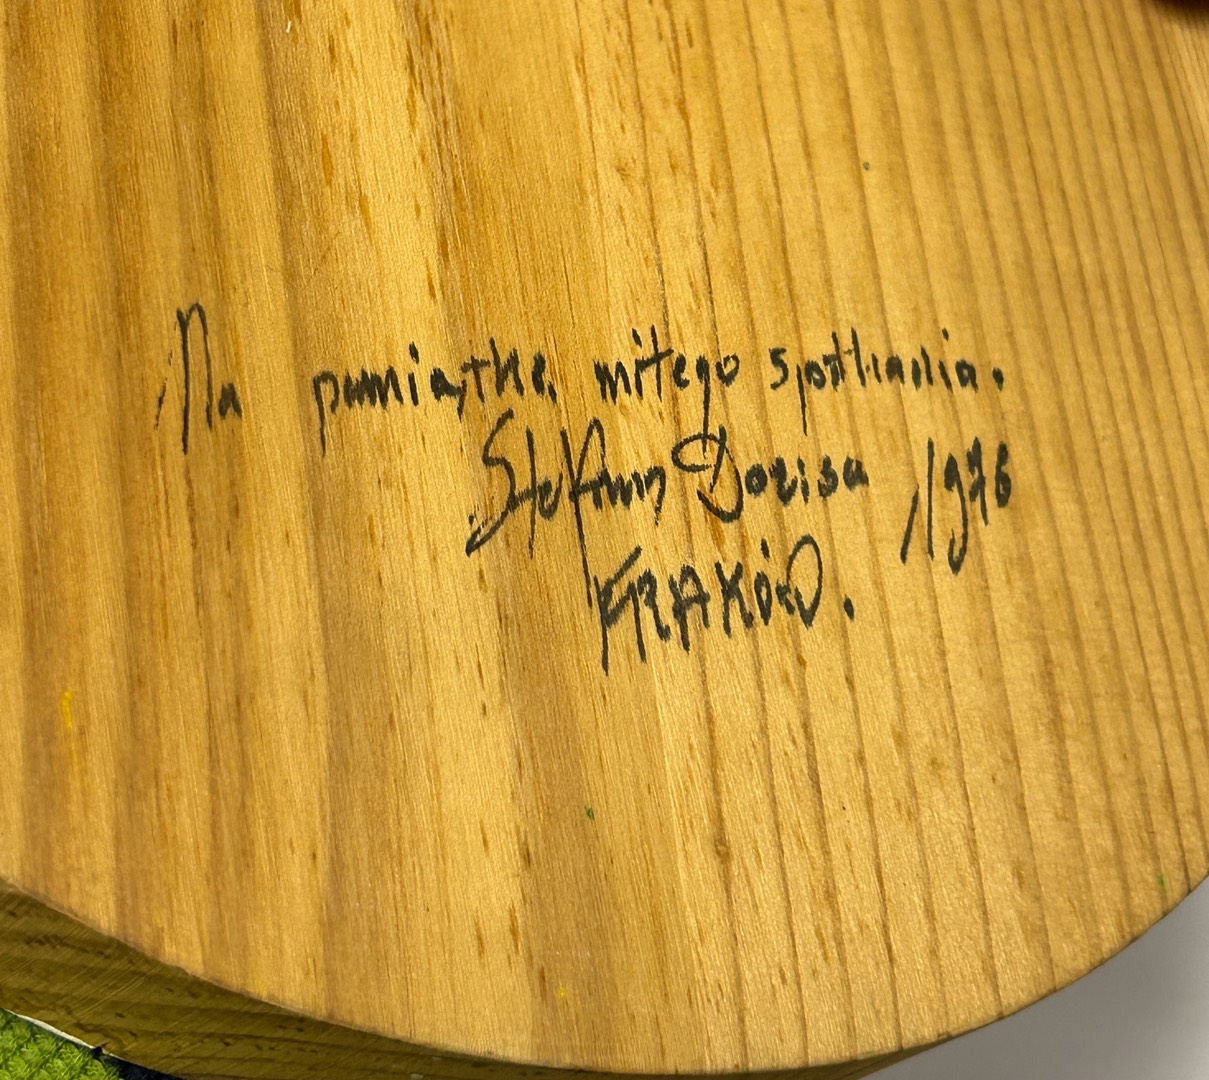 Na pamiątkę miłego spotkania.
Stefan Dorisa 1976
KRAKÓW.